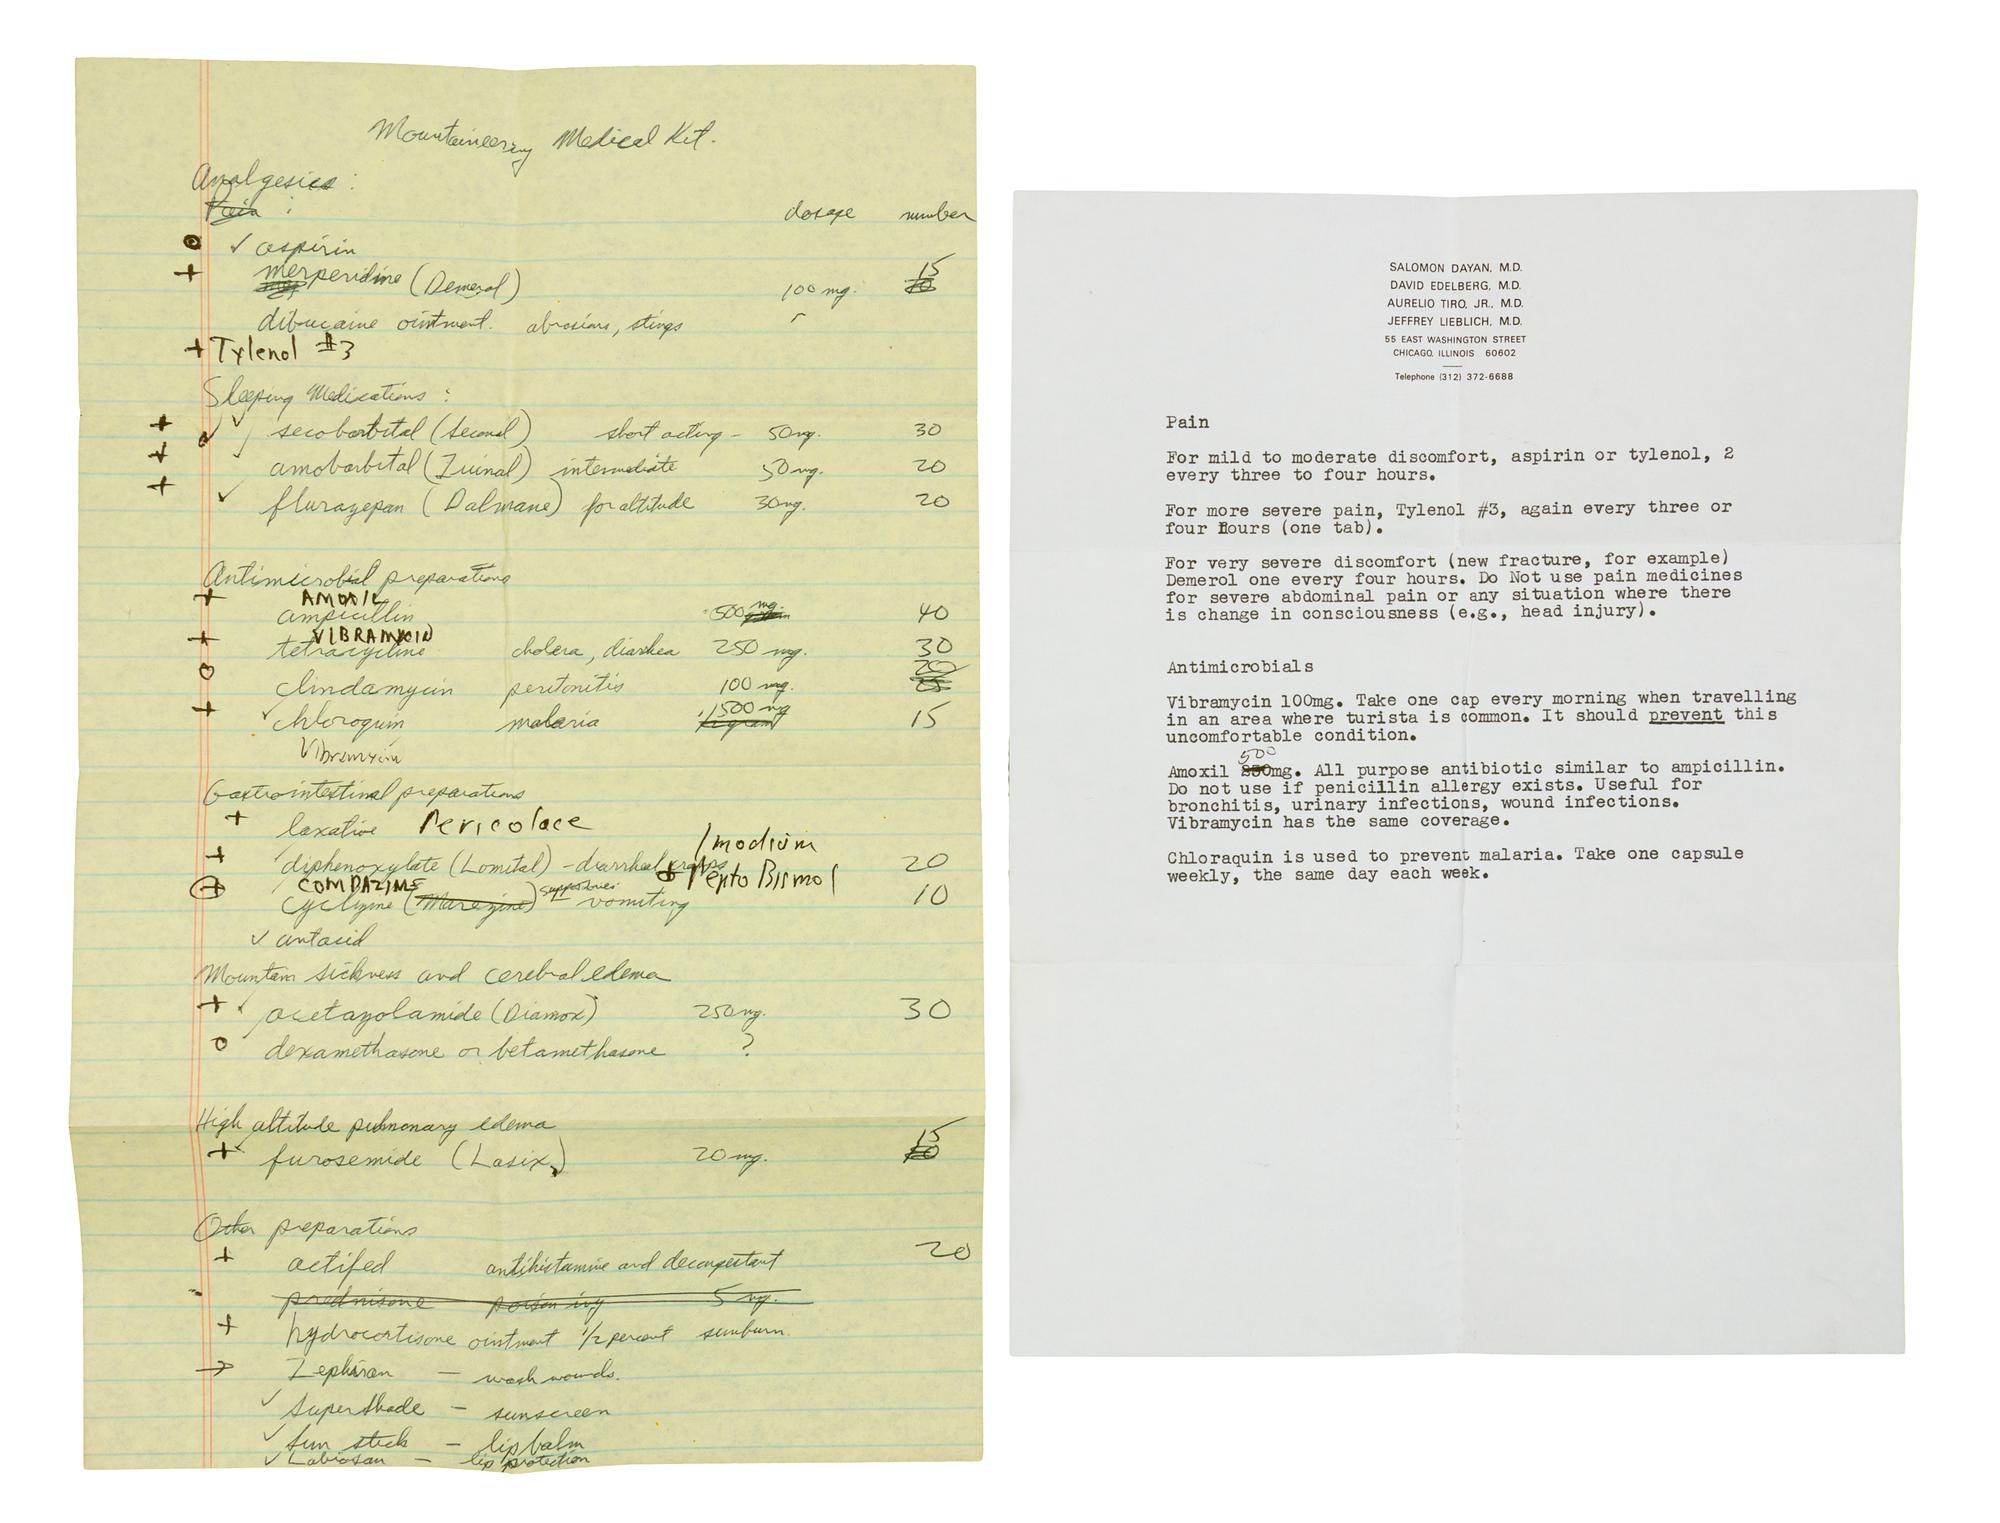 Mountaineering Medical Kit.
Analgesics :
Pain : dosage number
✓ aspirin
+ merperidine (Demerol) 100 mg. 15
dibucaine ointment. abrasions, stings
+ Tylenol #3
Sleeping Medications :
secobarbital (Seconal) short acting - 50 mg. 30
amobarbital (Tuinal) intermediate 50 mg. 20
✓ flurazepan (Dalmane) for altitude 30 mg. 20
Antimicrobial preparations
+ AMOXIL
ampicillin 500 mg. 40
+ VIBRAMYCIN
tetracycline cholera, diarrhea 250 mg. 30
o clindamycin peritonitis 100 mg. 20
+ ✓ chloroquin malaria 500 mg 15
Vibramycin
Gastrointestinal preparations
+ laxative Pericolace
Imodium
+ diphenoxylate (Lomital) - diarrheal cramps 20
+ Pepto Bismol
COMPAZINE
+ cyclizine (Marezine) suppositories vomiting 10
✓ antacid
Mountain sickness and cerebral edema
+ ✓ acetazolamide (Diamox) 250 mg. 30
o dexamethasone or betamethasone ?
High altitude pulmonary edema
+ furosemide (Lasix) 20 mg. 15
Other preparations
+ actifed antihistamine and decongestant 20
prednisone poison ivy 5 mg.
+ hydrocortisone ointment 1/2 percent sunburn.
→ Zephiran — wash wounds.
✓ Supershade — sunscreen
✓ Sun stick — lip balm
✓ Labiosan — lip protection
SALOMON DAYAN, M.D.
DAVID EDELBERG, M.D.
AURELIO TIRO, JR., M.D.
JEFFREY LIEBLICH, M.D.
55 EAST WASHINGTON STREET
CHICAGO, ILLINOIS 60602
Telephone (312) 372-6688
Pain
For mild to moderate discomfort, aspirin or tylenol, 2
every three to four hours.
For more severe pain, Tylenol #3, again every three or
four hours (one tab).
For very severe discomfort (new fracture, for example)
Demerol one every four hours. Do Not use pain medicines
for severe abdominal pain or any situation where there
is change in consciousness (e.g., head injury).
Antimicrobials
Vibramycin 100mg. Take one cap every morning when travelling
in an area where turista is common. It should prevent this
uncomfortable condition.
500
Amoxil 250mg. All purpose antibiotic similar to ampicillin.
Do not use if penicillin allergy exists. Useful for
bronchitis, urinary infections, wound infections.
Vibramycin has the same coverage.
Chloraquin is used to prevent malaria. Take one capsule
weekly, the same day each week.